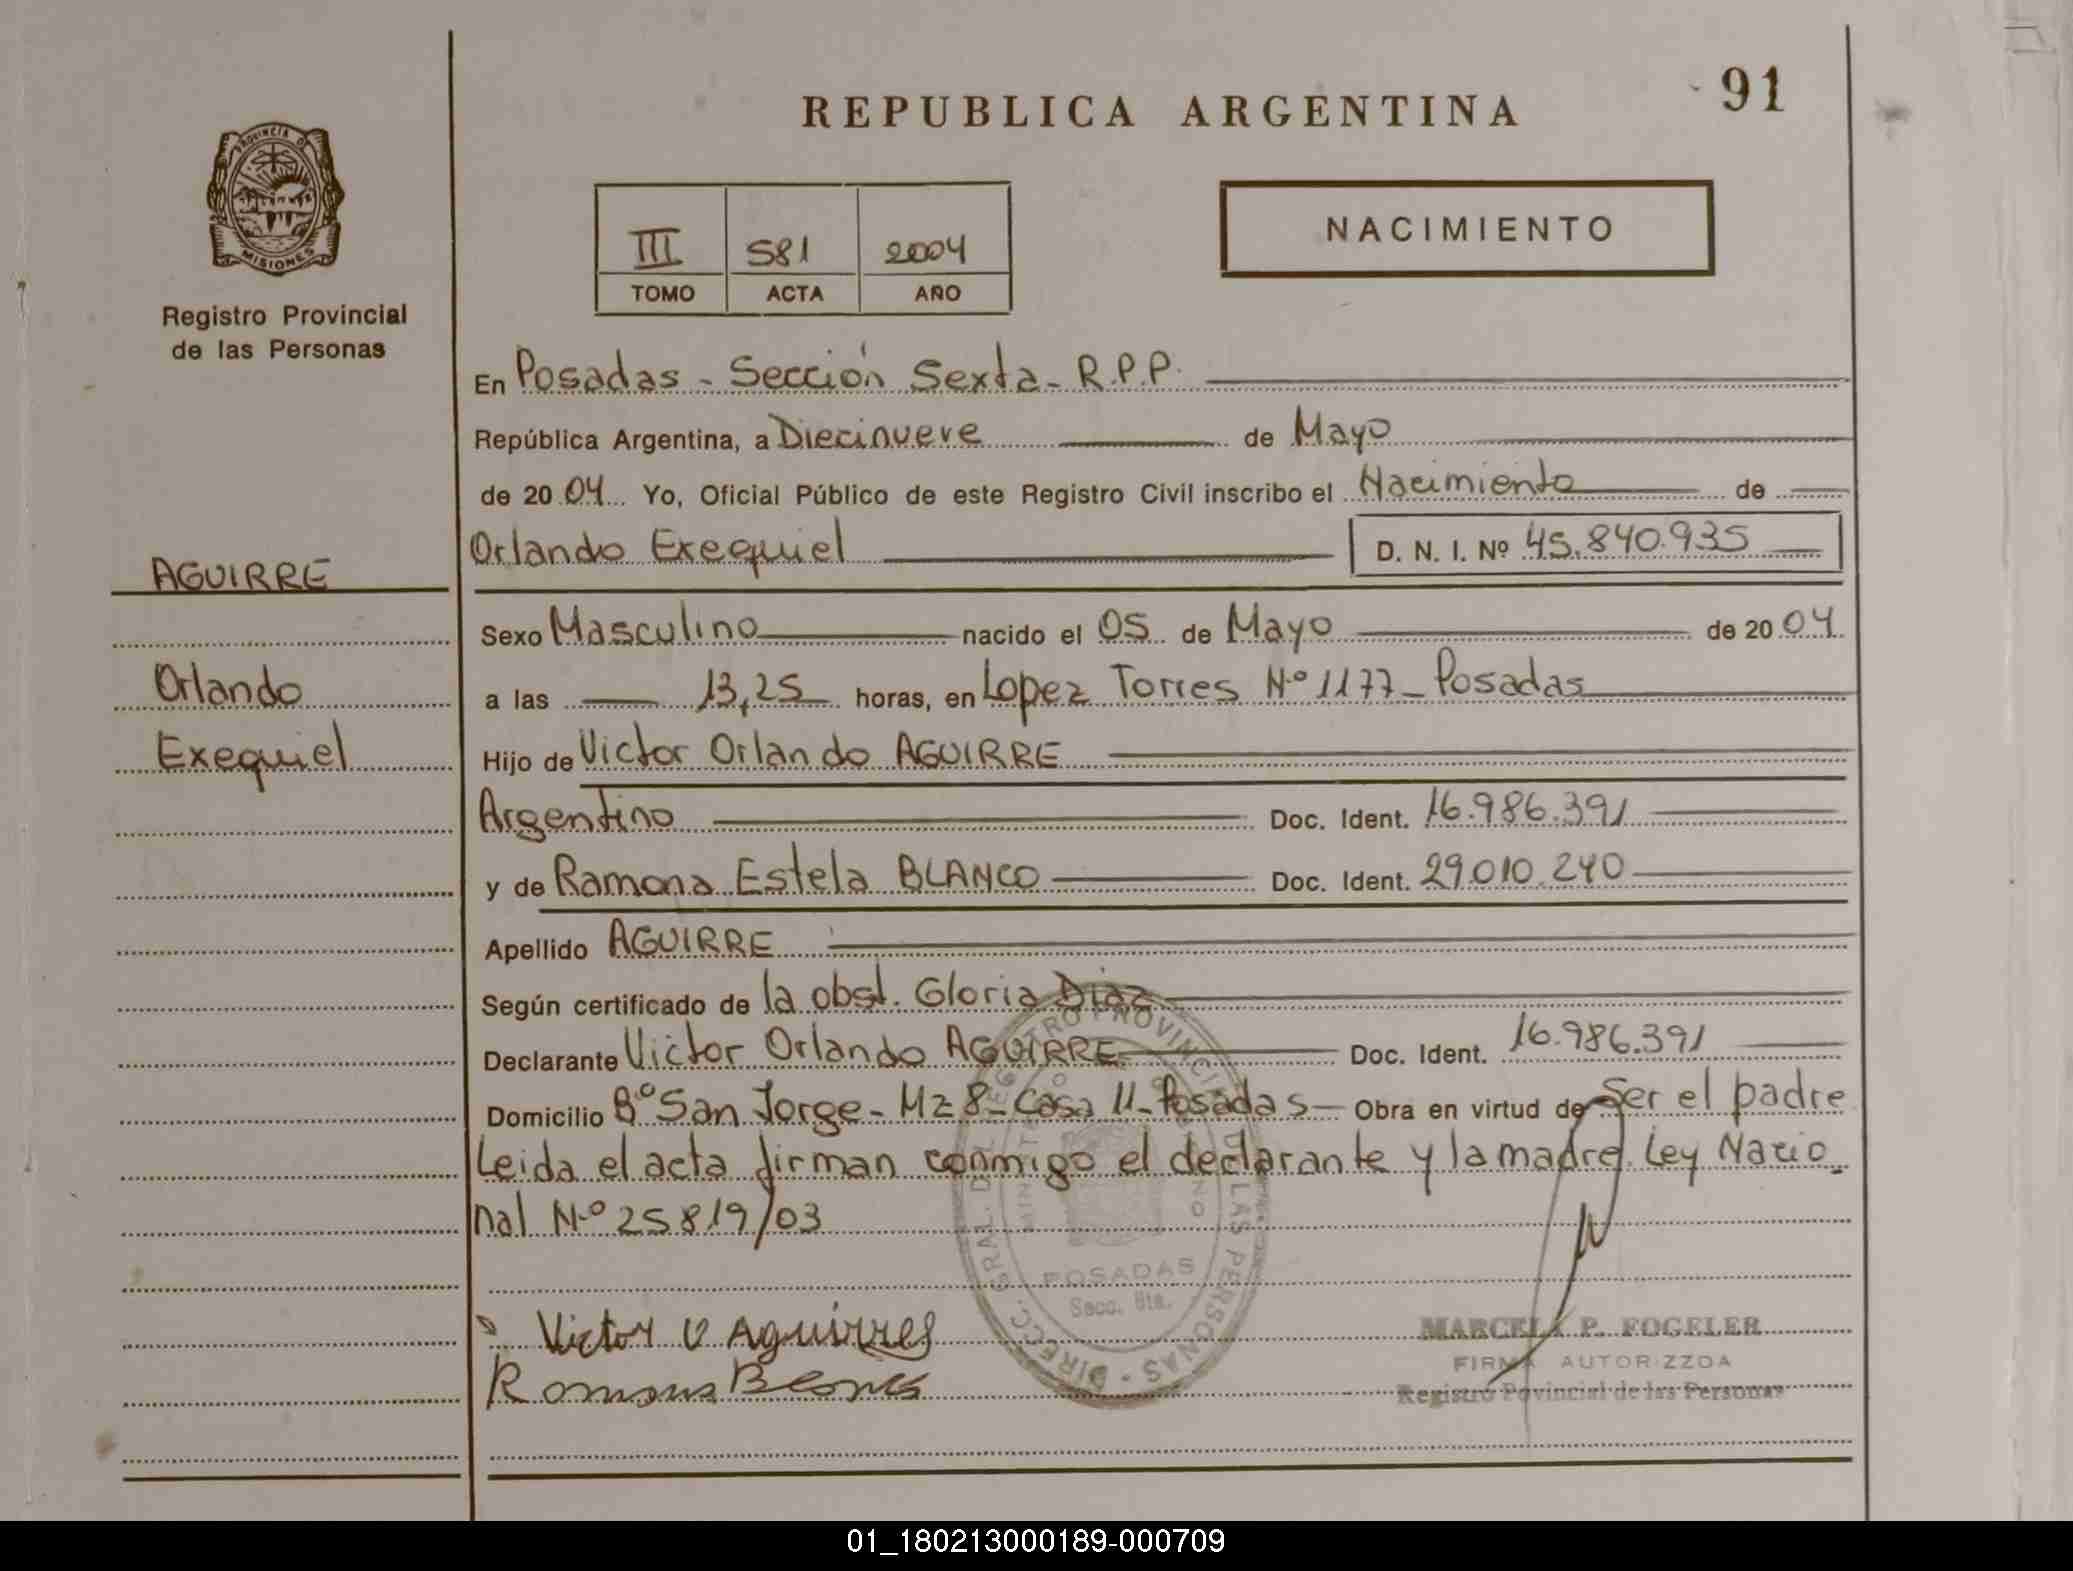 REPUBLICA ARGENTINA
91
PROVINCIA DE
MISIONES
Registro Provincial
de las Personas
III 581 2004
TOMO ACTA AÑO
NACIMIENTO
En Posadas - Sección Sexta - R.P.P.
República Argentina, a Diecinueve de Mayo
de 2004 Yo, Oficial Público de este Registro Civil inscribo el Nacimiento de
Orlando Exequiel D. N. I. Nº 45.840.935
AGUIRRE
Orlando
Exequiel
Sexo Masculino nacido el 05 de Mayo de 2004
a las 13,25 horas, en Lopez Torres Nº 1177 - Posadas
Hijo de Victor Orlando AGUIRRE
Argentino Doc. Ident. 16.986.391
y de Ramona Estela BLANCO Doc. Ident. 29.010.240
Apellido AGUIRRE
Según certificado de la obst. Gloria Diaz
Declarante Victor Orlando AGUIRRE Doc. Ident. 16.986.391
Domicilio Bº San Jorge - Mz 8 - Casa 11 - Posadas - Obra en virtud de Ser el padre
Leida el acta firman conmigo el declarante y la madre. Ley Nacio
nal Nº 25819/03
POSADAS
Secc. 6ta.
Victor O Aguirre
Ramona Blanco
MARCELA P. FOGELER
FIRMA AUTORIZZDA
Registro Povincial de las Personas
01_180213000189-000709